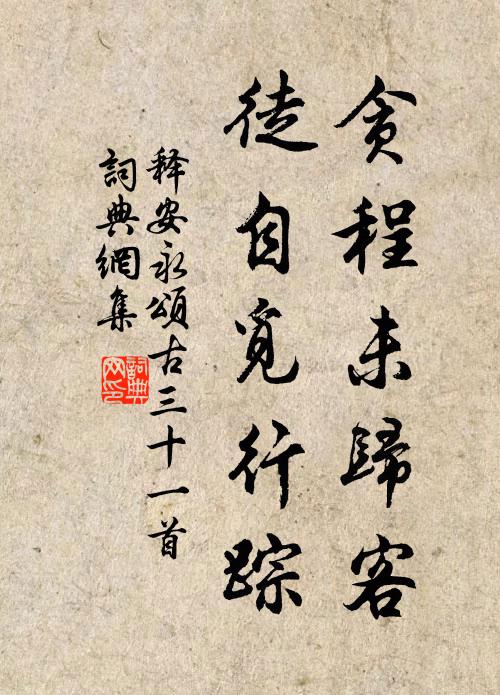 贪程未歸客
徒自覓行踪
释安永頌古三十一首
詞典網集
詞典网印